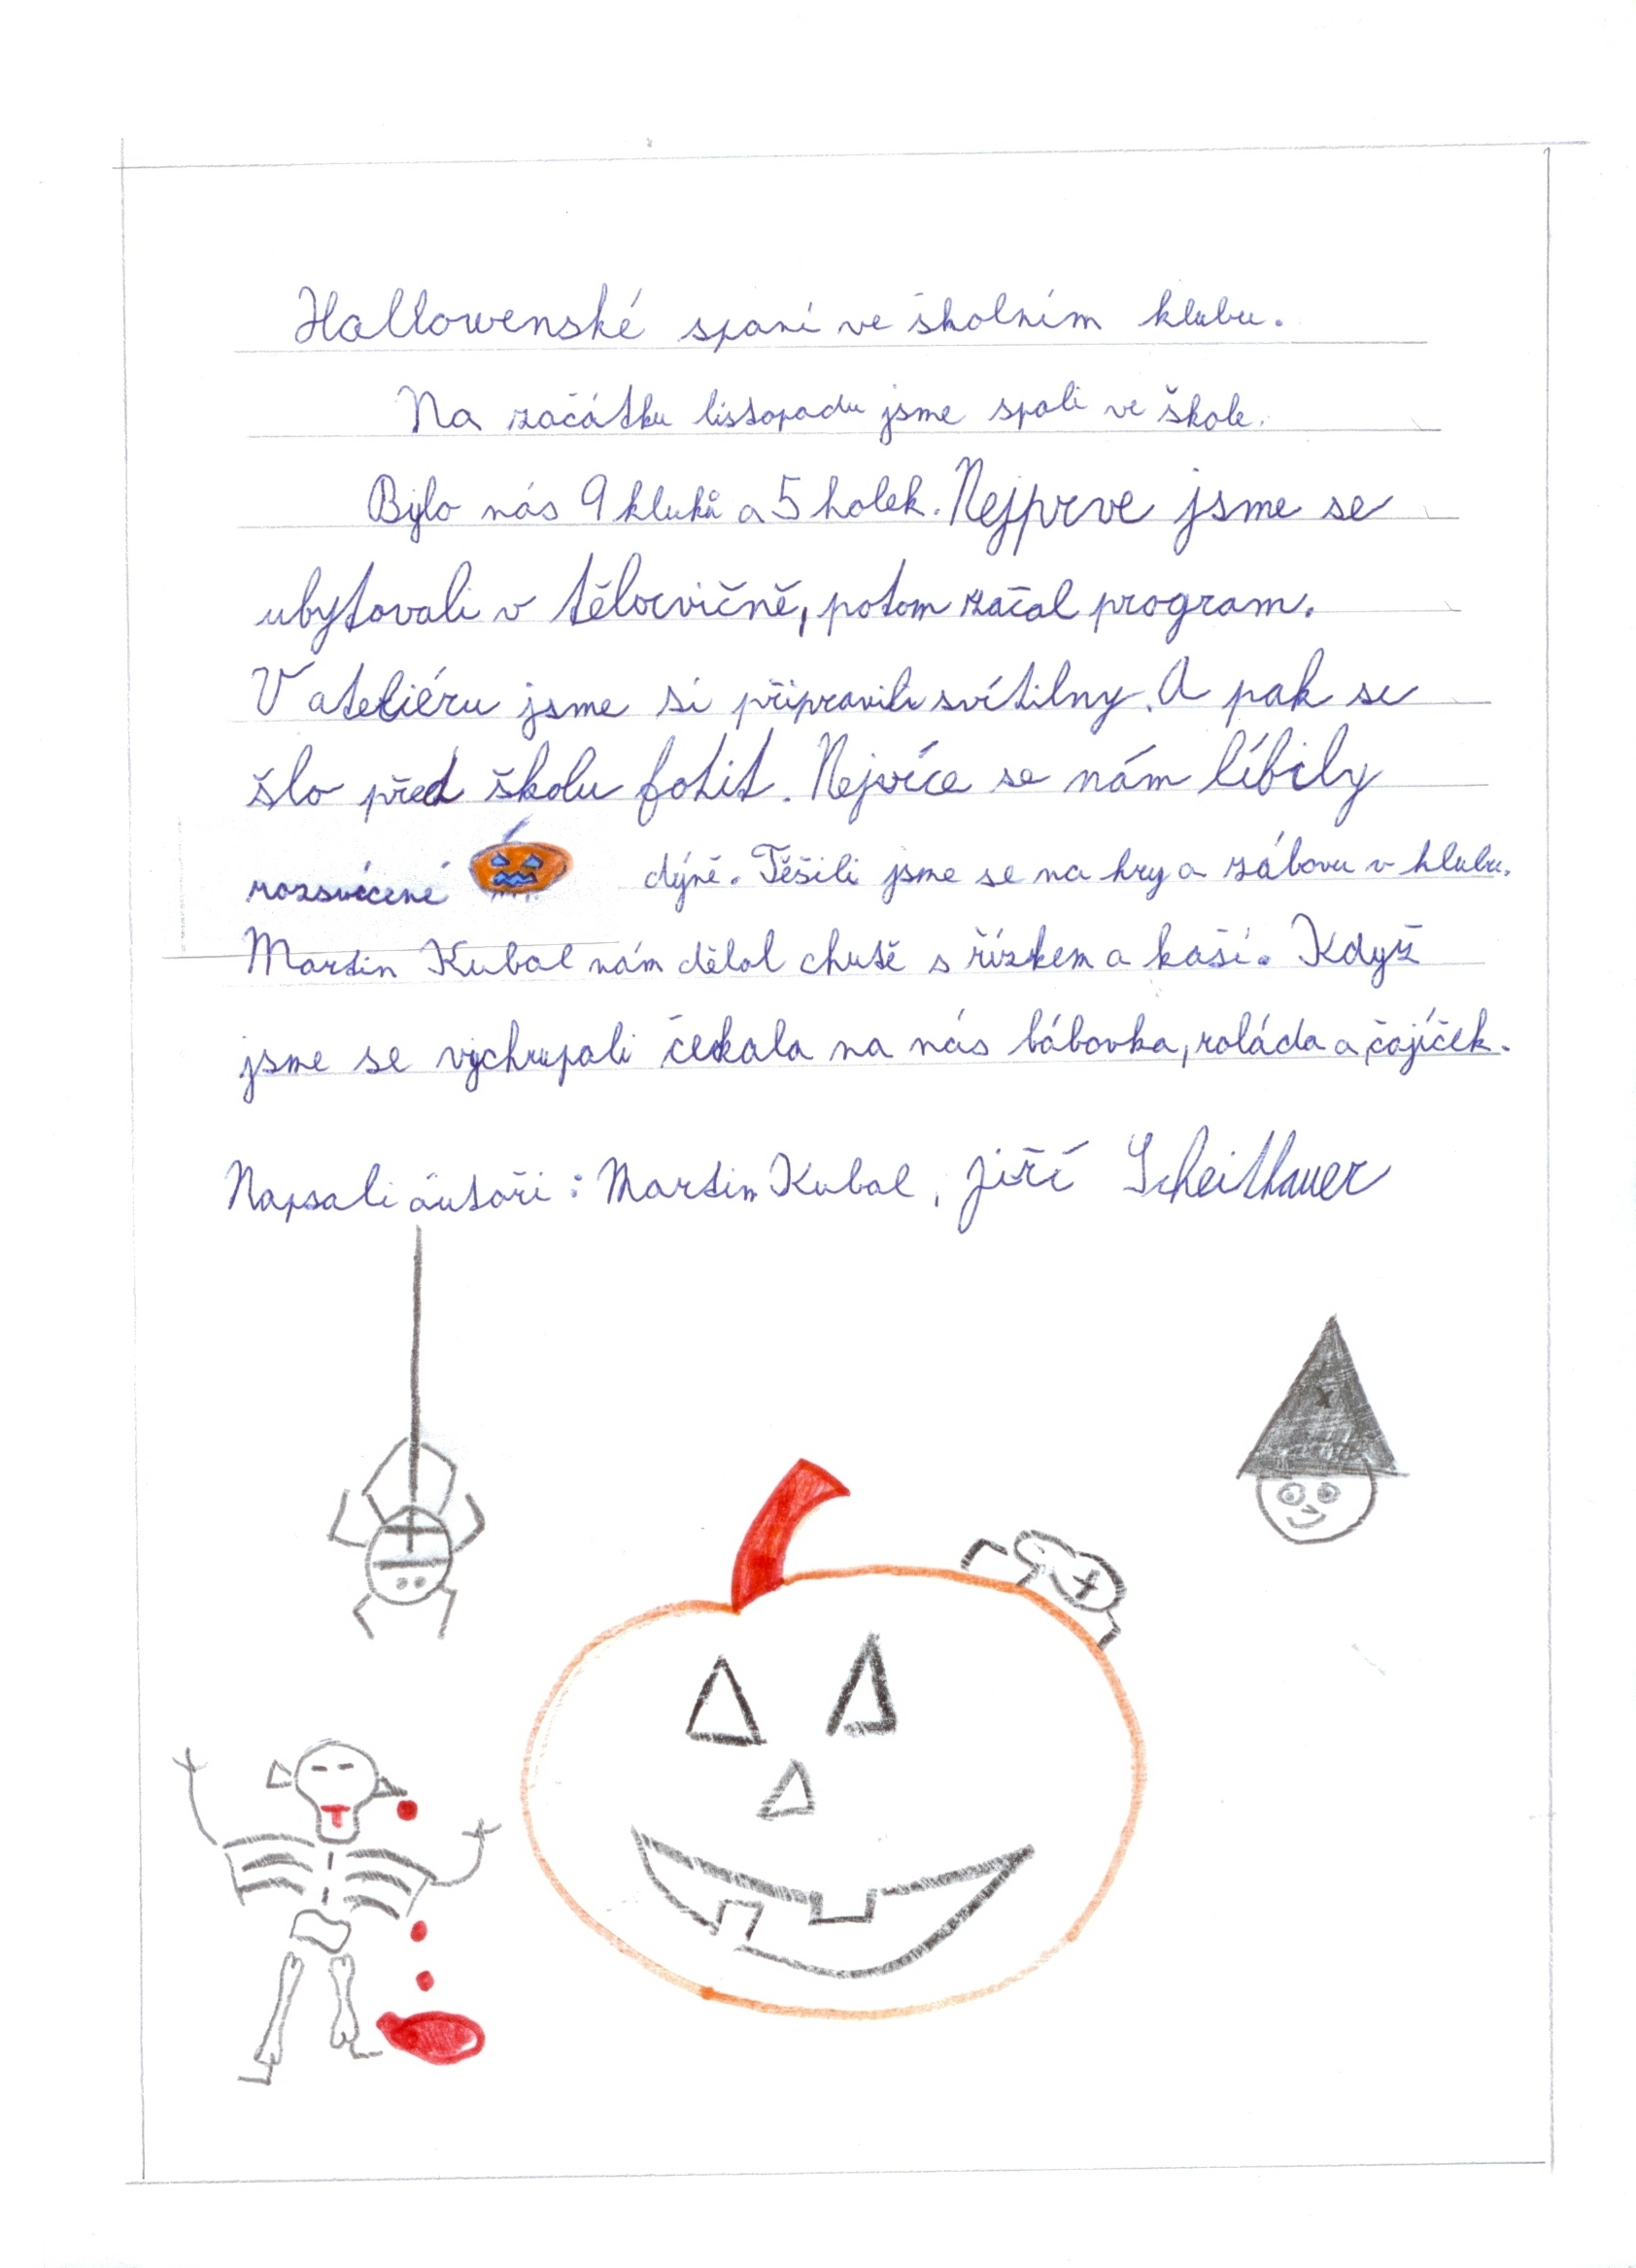 Hallowenské spaní ve školním klubu.
Na začátku listopadu jsme spali ve škole.
Bylo nás 9 kluků a 5 holek. Nejprve jsme se
ubytovali v tělocvičně, potom začal program.
V ateliéru jsme si připravili svítilny. A pak se
šlo před školu fotit. Nejvíce se nám líbily
rozsvícené dýně. Těšili jsme se na hry a zábavu v klubu.
Martin Kubal nám dělal chutě s řízkem a kaší. Když
jsme se vychrupali čekala na nás bábovka, roláda a čajíček.
Napsali autoři: Martin Kubal, Jiří Scheithauer